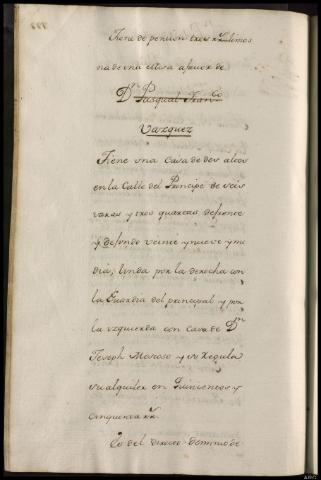 Tiene de pension tres rs. Y limos
na de una missa a favor de
Dn. Pasqual Franco.
Vazquez
Tiene una Casa de dos altos
en la Calle del Principe de seis
varas y tres quartas de frente
y de fondo veinte y nueve y me
dia, linda por la derecha con
la Guardia del principal y por
la yzquierda con Casa de Dn.
Joseph Moroso y se Regula
su alquiler en Quinientos y
cinquenta rs.
Es del directo dominio de